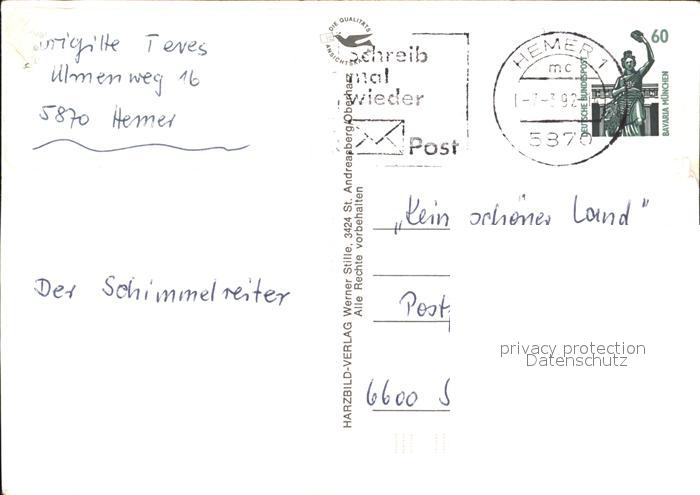 Brigitte Teves
Ulmenweg 16
5870 Hemer
Der Schimmelreiter
DIE QUALITÄTS
ANSICHTSKARTE
Schreib
mal
wieder
Post
HEMER 1
mc
-7-3 92
5870
60
DEUTSCHE BUNDESPOST
BAVARIA MÜNCHEN
HARZBILD-VERLAG Werner Stille, 3424 St. Andreasberg/Oberharz
Alle Rechte vorbehalten
„Kein schöner Land"
Post
6600 S
privacy protection
Datenschutz